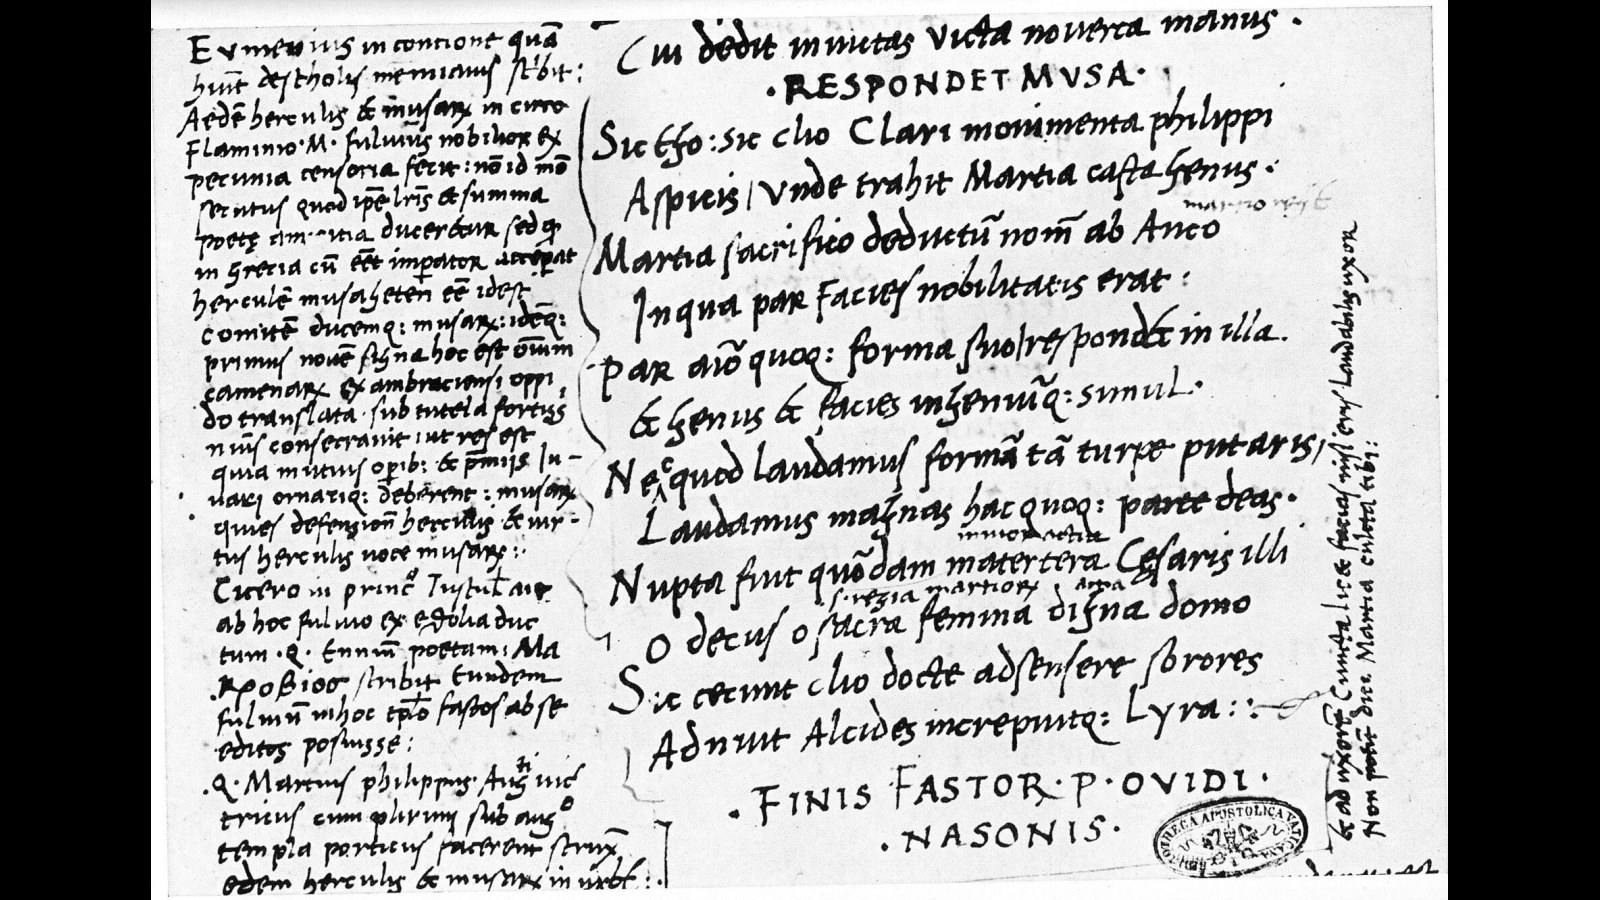 Eumenius in concione quā
hūt de scholis menianis sc̄bit:
Aedē herculis & musaꝝ in circo
Flaminio · M · fulvius nobilior ex
pecunia censoria fecit: nō id mō
secutus quod ip̄e lr̄is & summa
poetę amicitia duceretur sed ꝙ
in grecia cū eēt imp̱ator acceperat
herculē musagetēn eē idest
comitē ducemq: musaꝝ: idēq:
primus novē signa hoc est oīum
camenaꝝ ex ambraciensi oppi
do translata sub tutela fortiss
numīs consecravit ut res est
quia mutuis op̱ib: & p̄mijs Iu-
vari ornariq: deberent: musaꝝ
quies defensioñ herculis & vir-
tus herculis voce musaꝝ:
Cicero in princ° Tuscul̄ aiт
ab hoc fulvio ex ętolia duc
tum · Q · Enniū poetam: Ma
κροβιος scribit Eundem
fulviū in hoc tp̄lo fastos ab se
editos posuisse:
· Q · Martius philippus · Augti vic
tricus cum plurimi sub aug°
templa porticus facerent strux̄
edem herculis & musaꝝ in urbe:
Cui dedit invictas victa noverca manus ·
· RESPONDET MVSA ·
Sic ego: sic clio Clari monimenta philippi
Aspicis / Vnde trahit Martia casta genus ·
Martia sacrifico deductū nom̄ ab Anco
In qua par facies nobilitatis erat:
par aīo quoq: forma suo respond& in illa.
& genus & facies ingeniūq: simul ·
Nec quod laudamus formā tā turpe putaris /
Laudamus magnas hac quoq: parte deas ·
Nupta fuit quōdam matertera Cęsaris illi
s · regia martioꝝ
O decus o sacra femina digna domo
Sic cecinit clio docte adsensere sorores
Adnuit Alcides increpuitq: Lyra:
· FINIS FASTOR · P · OVIDI ·
· NASONIS ·
& ad uxorē Cuncta lic& facias nisi eris laudabilis uxor
Non potū dici Martia culeta tibi: